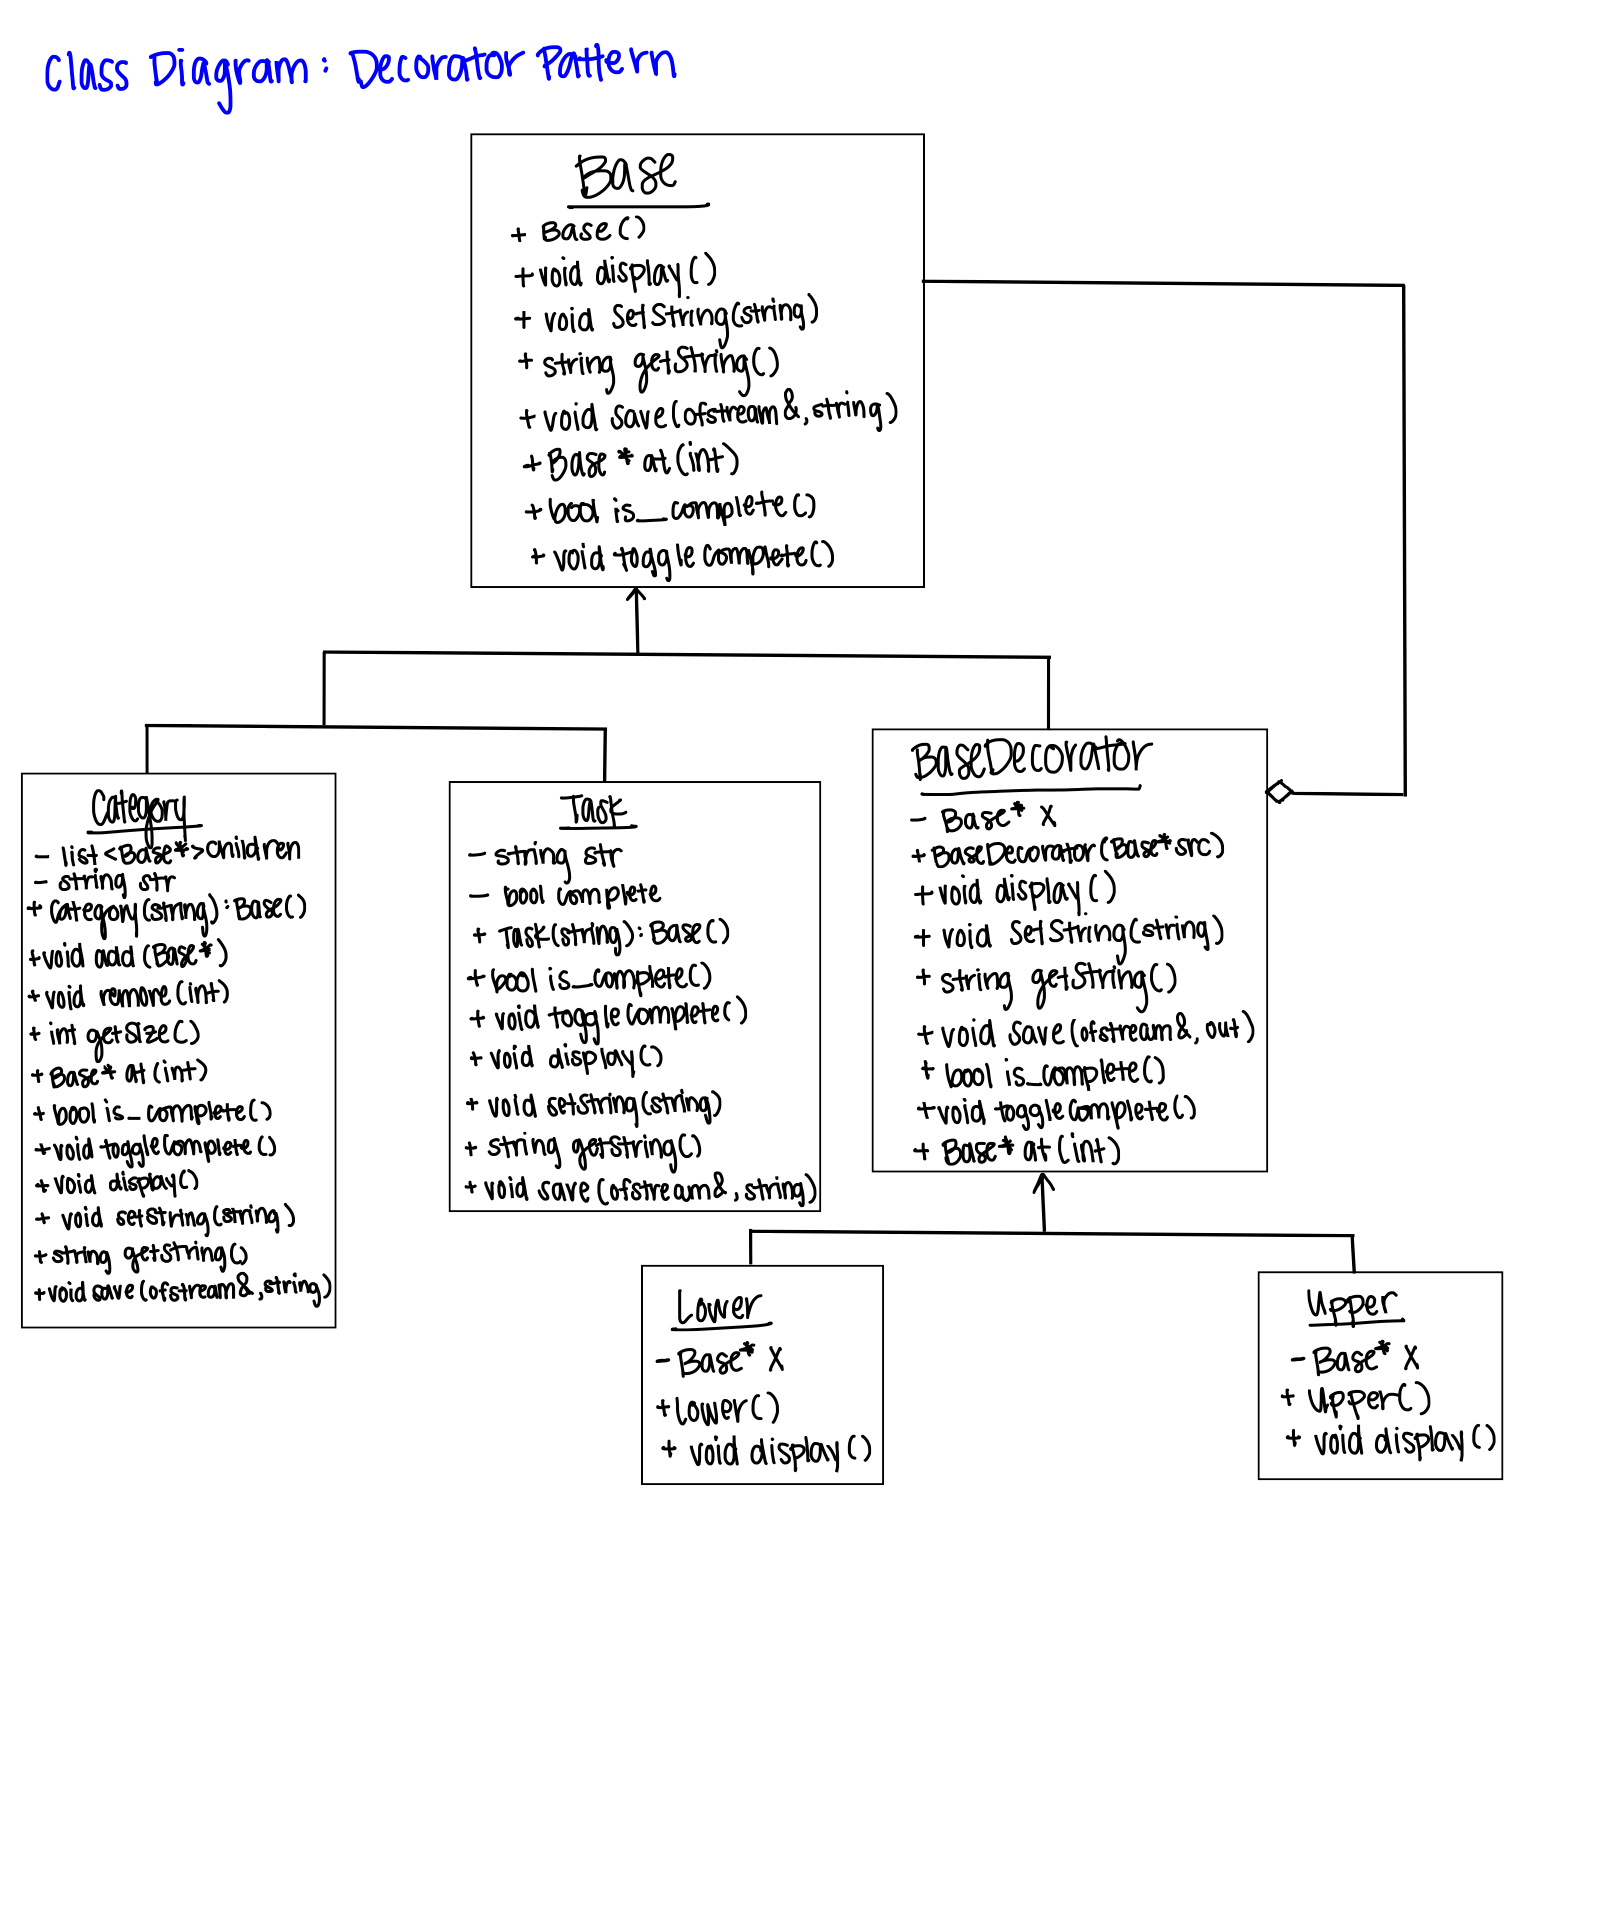 Class Diagram: Decorator Pattern
Base
+ Base()
+ void display()
+ void SetString(string)
+ string getString()
+ void save(ofstream&, string)
+ Base * at(int)
+ bool is_complete()
+ void toggleComplete()
Category
- list<Base*>children
- string str
+ Category(string): Base()
+ void add(Base*)
+ void remove(int)
+ int getSize()
+ Base* at(int)
+ bool is_complete()
+ void toggleComplete()
+ void display()
+ void setString(string)
+ string getString()
+ void save(ofstream&, string)
Task
- string str
- bool complete
+ Task(string): Base()
+ bool is_complete()
+ void toggleComplete()
+ void display()
+ void setString(string)
+ string getString()
+ void save(ofstream&, string)
BaseDecorator
- Base* X
+ BaseDecorator(Base* src)
+ void display()
+ void SetString(string)
+ string getString()
+ void save(ofstream&, out)
+ bool is_complete()
+ void toggleComplete()
+ Base* at(int)
Lower
- Base* X
+ Lower()
+ void display()
Upper
- Base* X
+ Upper()
+ void display()